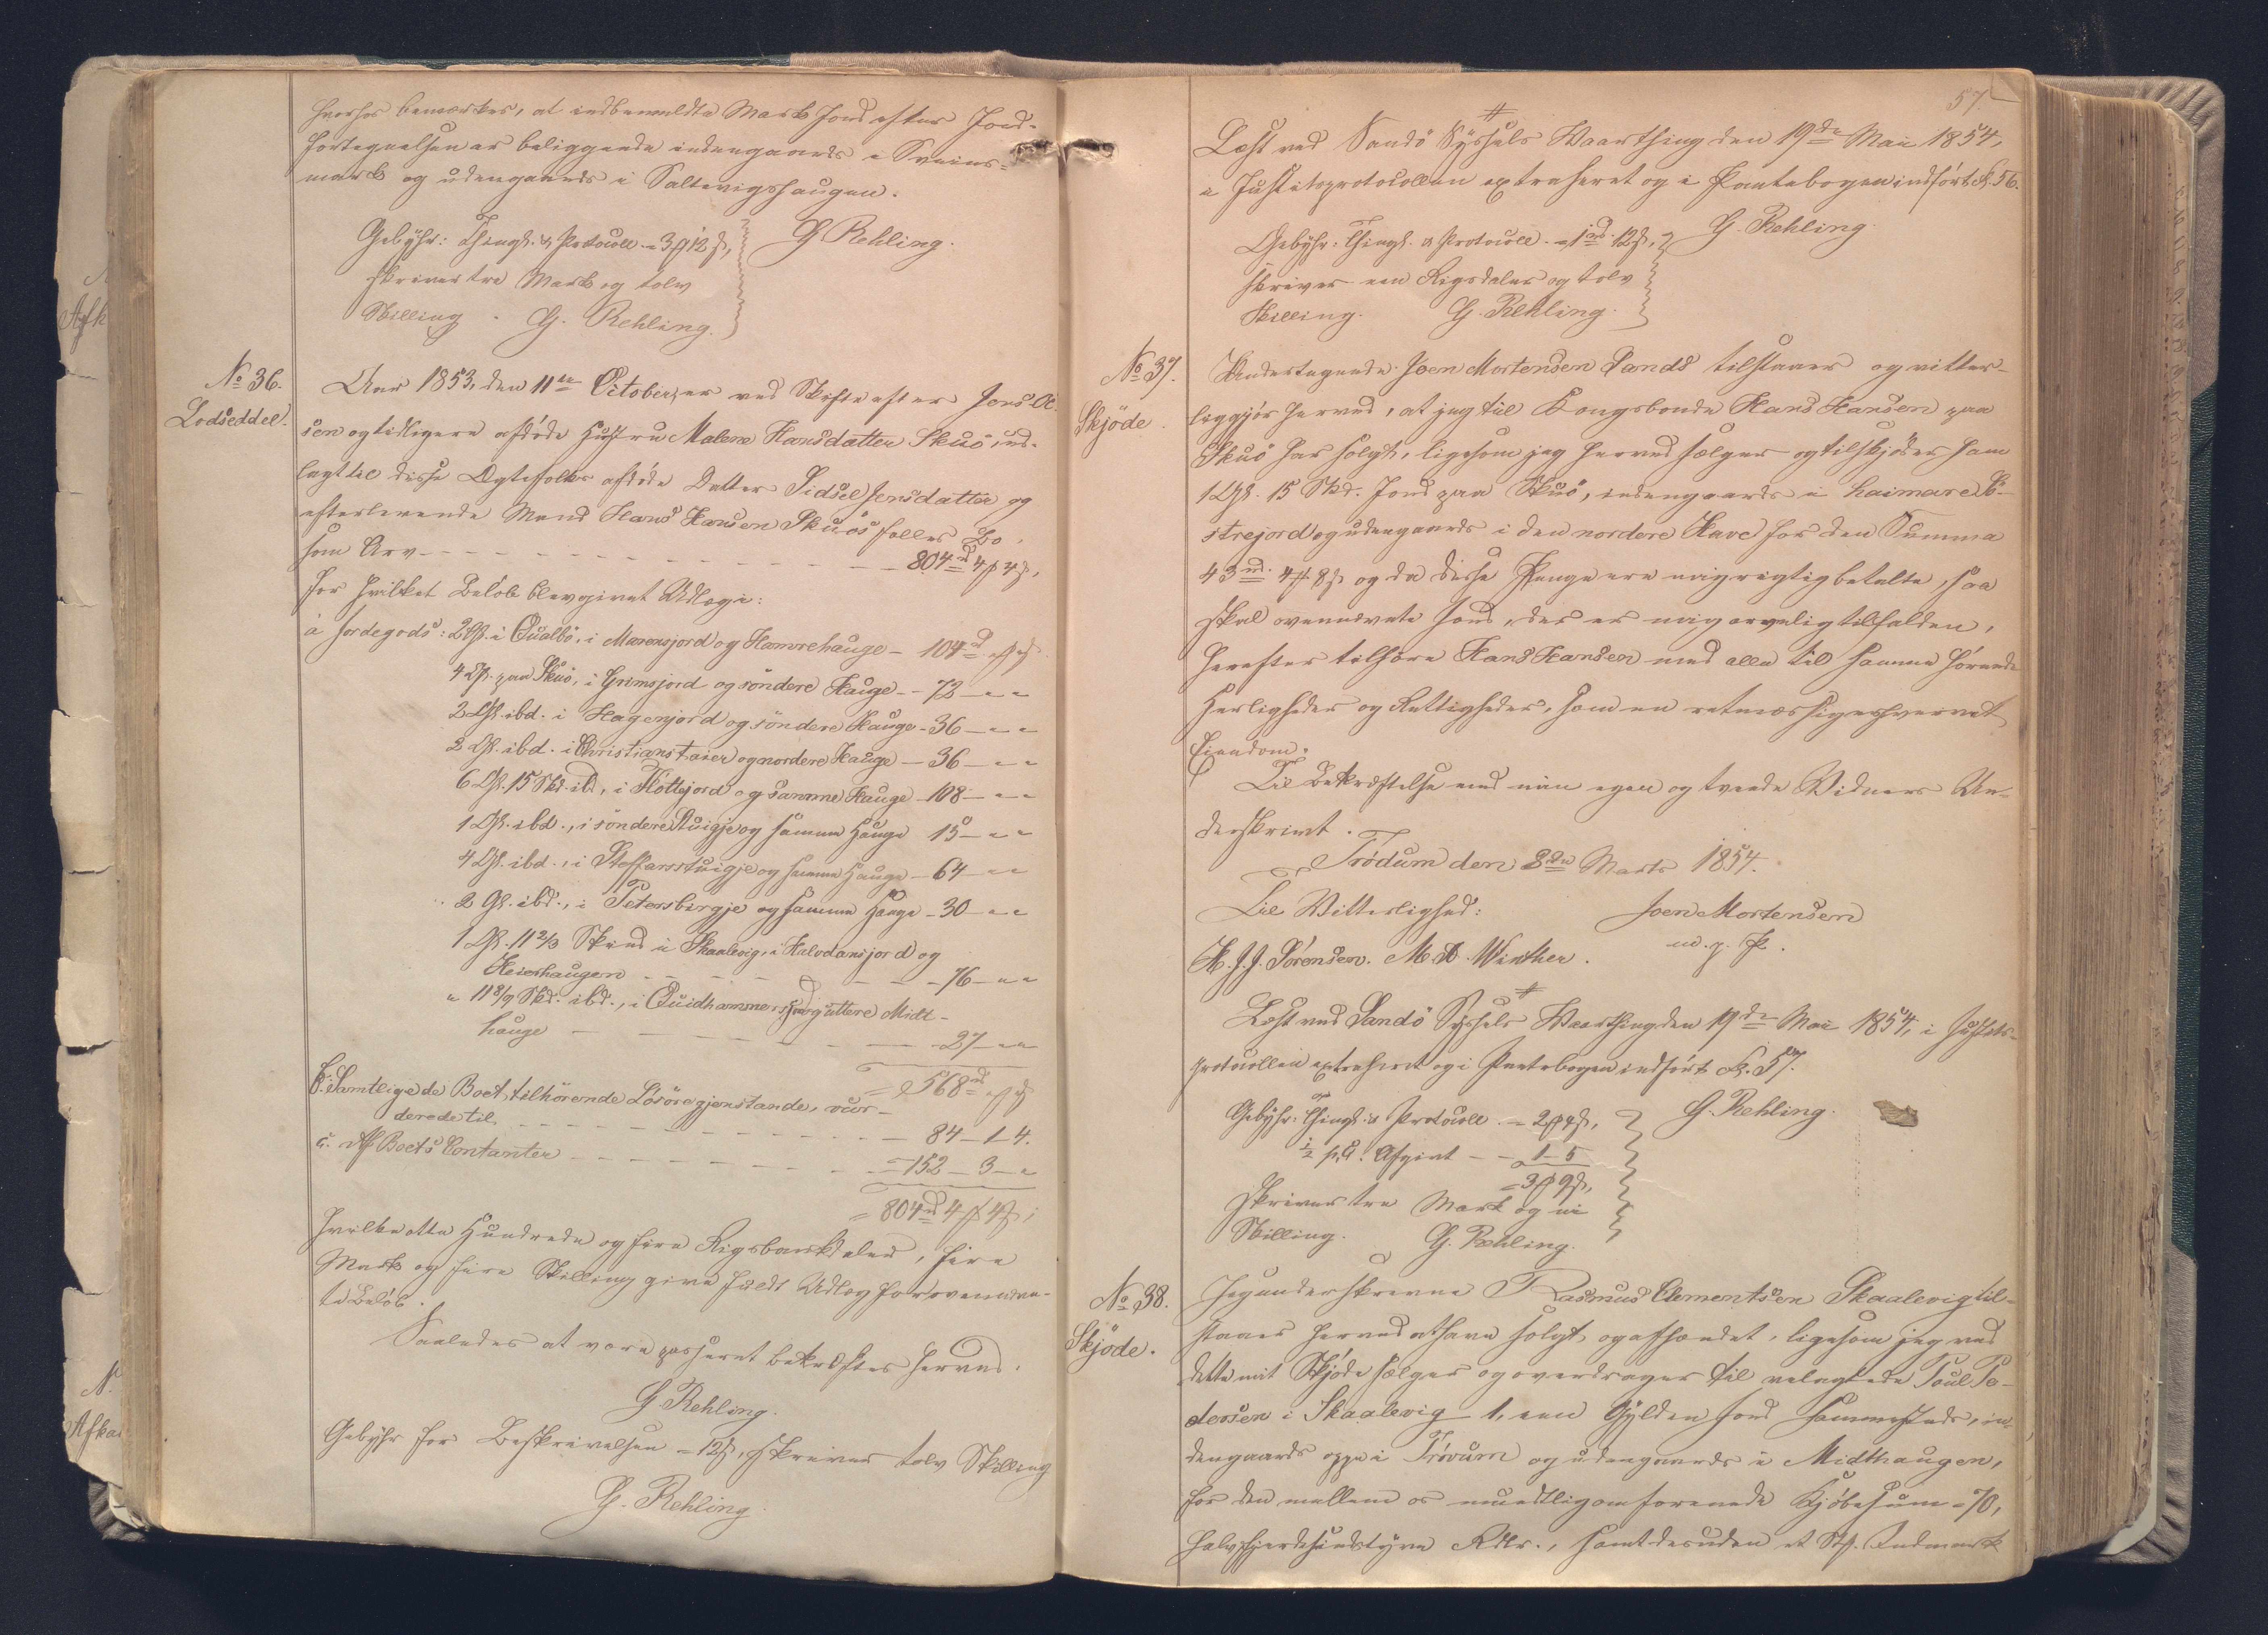 hvorhos bemærkes, at indbemeldte Mark Jord efter Jord-
fortegnelsen er beliggende indengaards i Sveins-
mark og udengaards i Saltevigshaugen.
Gebÿhr: Thingl. & Protocoll. = 3 ß 12 ß, G. Rehling.
skriver tre Mark og tolv
Skilling. G. Rehling.
No 36.
Lodseddel.
Aar 1853, den 11te October, er ved Skifte efter Jens Ol-
sen og tidligere afdöde Hustru Malene Hansdatter Skuö ud-
lagt til disse Ægtefolks afdöde Datter Sidsel Jensdatter og
efterlevende Mand Hans Hansen Skuös fælles Bo,
som Arv - - - 804 rd 4 ß 4 ß,
for hvilket Belöb blev givet Udlæg i:
a Jordegods: 2 Gl. i Qualbö, i Marensjord og Hamrehauge - 104 rd " ß " ß
4 Gl. paa Skuö, i Grimsjord og söndere Hauge - - 72 - " "
2 Gl. ibd. i Hagenjord og söndere Hauge - 36 - " "
2 Gl. ibd. i Christianstaier og nordere Hauge - 36 - " "
6 Gl. 15 Skd. ibd, i Flöttejord og samme Hauge - 108 - " "
1 Gl. ibd., i söndere Stuigje og samme Hauge 15 - " "
4 Gl. ibd., i Steffansstuigje og samme Hauge - 64 - " "
2 Gl. ibd., i Petersbirgje og samme Hauge - 30 - " "
1 Gl. 11 2/3 Skind i Skaalevig, i Halvdansjord og
Heierhaugen - - - 76 - " "
" 11 8/9 Skd. ibd., i Quidhammersjord og uttere Midt-
hauge - - - 27 - " "
= 568 rd " ß " ß
b. Samtlige de Boet tilhörende Lösöregjenstande, vur-
derede til, - - - 84 - 1 - 4.
c. Af Boets Contanter - - - = 152 - 3 - "
= 804 rd 4 ß 4 ß,
hvilke otte Hundrede og fire Rigsbankdaler, fire
Mark og fire Skilling give fuldt Udlæg for ovennævn-
te Belöb.
Saaledes at være passeret bekræftes herved.
G. Rehling.
Gebÿhr for Beskrivelsen = 12 ß, skriver tolv Skilling
G. Rehling.
57.
Læst ved Sandö Sÿssels Vaarthing den 19de Mai 1854,
i Justitsprotocollen extraheret og i Pantebogen indfört F. 56.
Gebÿhr: Thingl. & Protocoll. = 1 rd. 12 ß, G. Rehling.
skriver een Rigsdaler og tolv
Skilling. G. Rehling.
No 37.
Skjöde.
Undertegnede Joen Mortensen Sands tilstaaer og vitter-
liggjör herved, at jeg til Kongsbonde Hans Hansen paa
Skuö har solgt, ligesom jeg herved sælger og tilskjöder ham
1 Gl. 15 Skd. Jord paa Skuö, indengaards i haimare Ö-
strejord og udengaards i den nordere Have for den Summa
43 rd. 4 ß. 8 ß og da disse Penge ere mig rigtig betalte, saa
skal ovennævnte Jord, der er mig arvelig tilfalden,
herefter tilhöre Hans Hansen med alle til samme hörende
Herligheder og Rettigheder, som en retmæssig erhvervet
Eiendom.
Til Bekræftelse med min egen og tvende Vidners Un-
derskrivt.
Tródum den 22de Marts 1854.
Til Vitterlighed: Joen Mortensen
H. J. J. Sörensen. M. A. Winther. m. p. P.
Læst ved Sandö Sÿssels Vaarthing den 19de Mai 1854, i Justits-
protocollen extraheret og i Pantebogen indfört F. 57.
Gebÿhr: Thingl. & Protocoll. = 2 ß 4 ß, G. Rehling.
1/2 p.C. Afgivt - - 1 - 5
= 3 ß 9 ß,
skriver tre Mark og ni
Skilling. G. Rehling.
No 38.
Skjöde.
Jeg underskrevne Rasmus Clementsen Skaalevig til-
staaer herved at have solgt og afhændet, ligesom jeg ved
dette mit Skjöde sælger og overdrager til velagtede Poul Pe-
dersen i Skaalevig 1, een Gÿlden Jord sammesteds, in-
dengaards oppe i Tróvum og udengaards i Midthaugen,
for den mellem os mundtlig omforenede Kjöbesum = 70,
halvfjerdsindstÿve Rdlr., samt desuden et Stk. Indmark